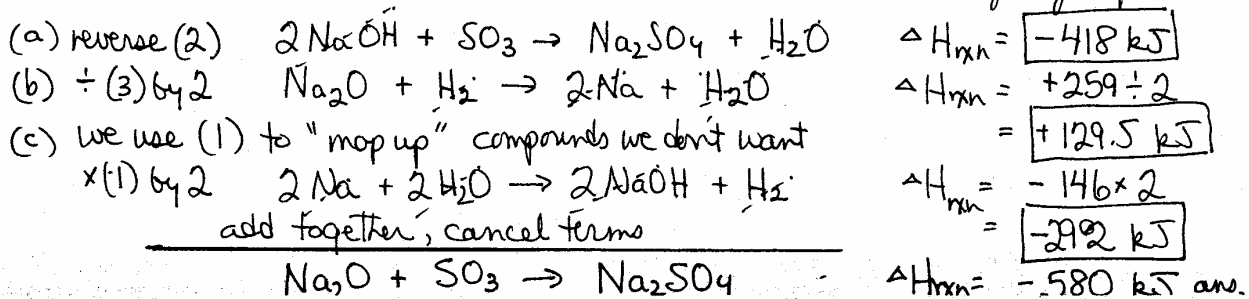 (a) reverse (2) 2 NaOH + SO₃ → Na₂SO₄ + H₂O ΔHrxn = -418 kJ
(b) ÷ (3) by 2 Na₂O + H₂ → 2 Na + H₂O ΔHrxn = +259 ÷ 2
(c) we use (1) to "mop up" compounds we don't want = +129.5 kJ
×(1) by 2 2 Na + 2 H₂O → 2 NaOH + H₂ ΔHrxn = -146×2
add together, cancel terms = -292 kJ
Na₂O + SO₃ → Na₂SO₄ ΔHrxn = -580 kJ ans.